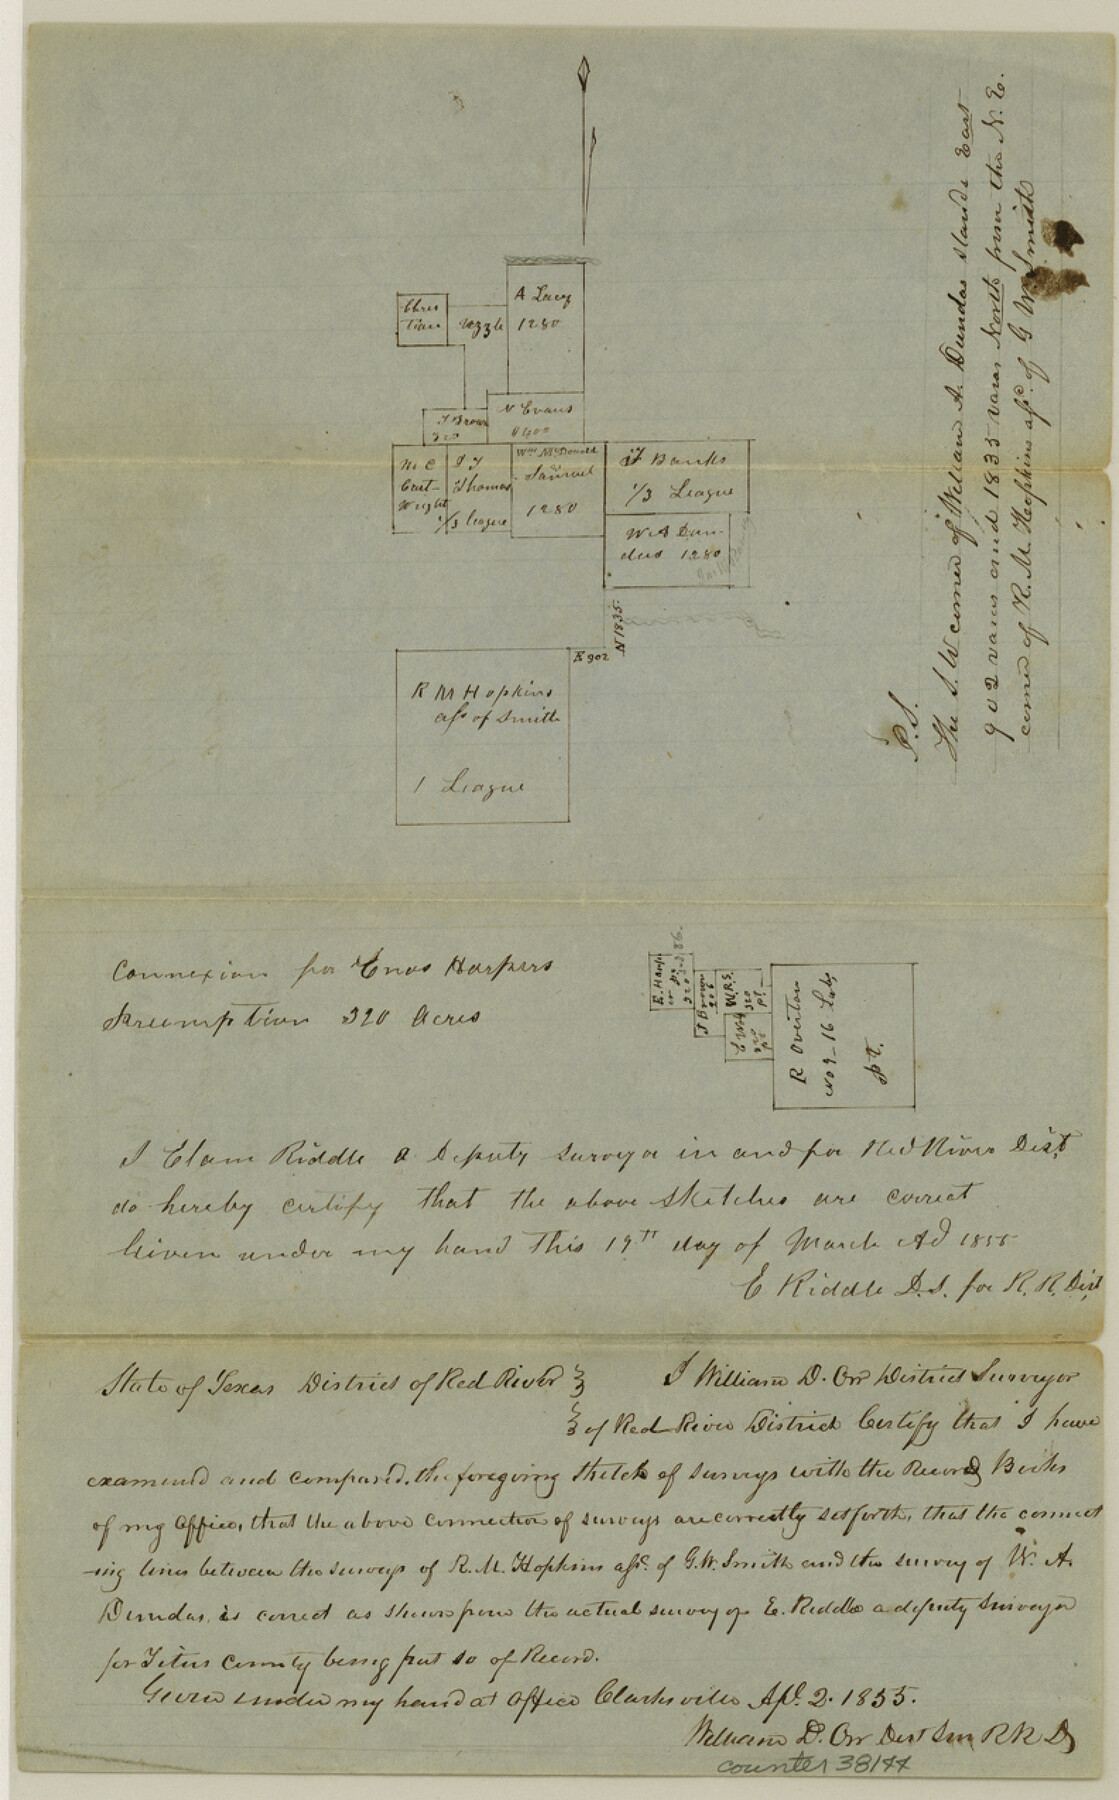 P.S.
The S.W corner of William A. Dundas stands East
902 varas and 1835 varas North from the N.E.
corner of R.M. Hopkins asse. of G W. Smith
Chris
tian
Uzzle
A Lacy
1280
J Brown
320
N Evans
M C
Cart-
Wright
I J
Thomas
1/3 league
Wm McDonald
Samuel
1280
J Banks
1/3 League
W A Dun-
das 1280
N 1835
E 902
R M Hopkins
asse of Smith
1 League
Connexion for Enos Harpers
Preemption 320 Acres
E. Harp
er pe
320
86.
J Brown
206
W.R.S.
320
pt
320
R Overton
No 9-16 Lab,
pt.
I Elam Riddle a Deputy surveyor in and for Red River Dist,
do hereby certify that the above sketches are correct
Given under my hand this 19th day of March AD 1855
E Riddle D.S. for R. R. Dist,
State of Texas District of Red River } I William D. Orr District Surveyor
} of Red River District Certify that I have
examined and compared the foregoing sketch of surveys with the Records Books
of my office, that the above connection of surveys are correctly set forth, that the connect
-ing lines between the surveys of R. M. Hopkins asse. of G. W. Smith and the survey of W. A.
Dundas, is correct as shown from the actual survey of E. Riddle a deputy surveyor
for Titus County being put so of Record.
Given under my hand at office Clarksville Apl. 2. 1855.
William D. Orr Dist Sur R R D
counter 38144